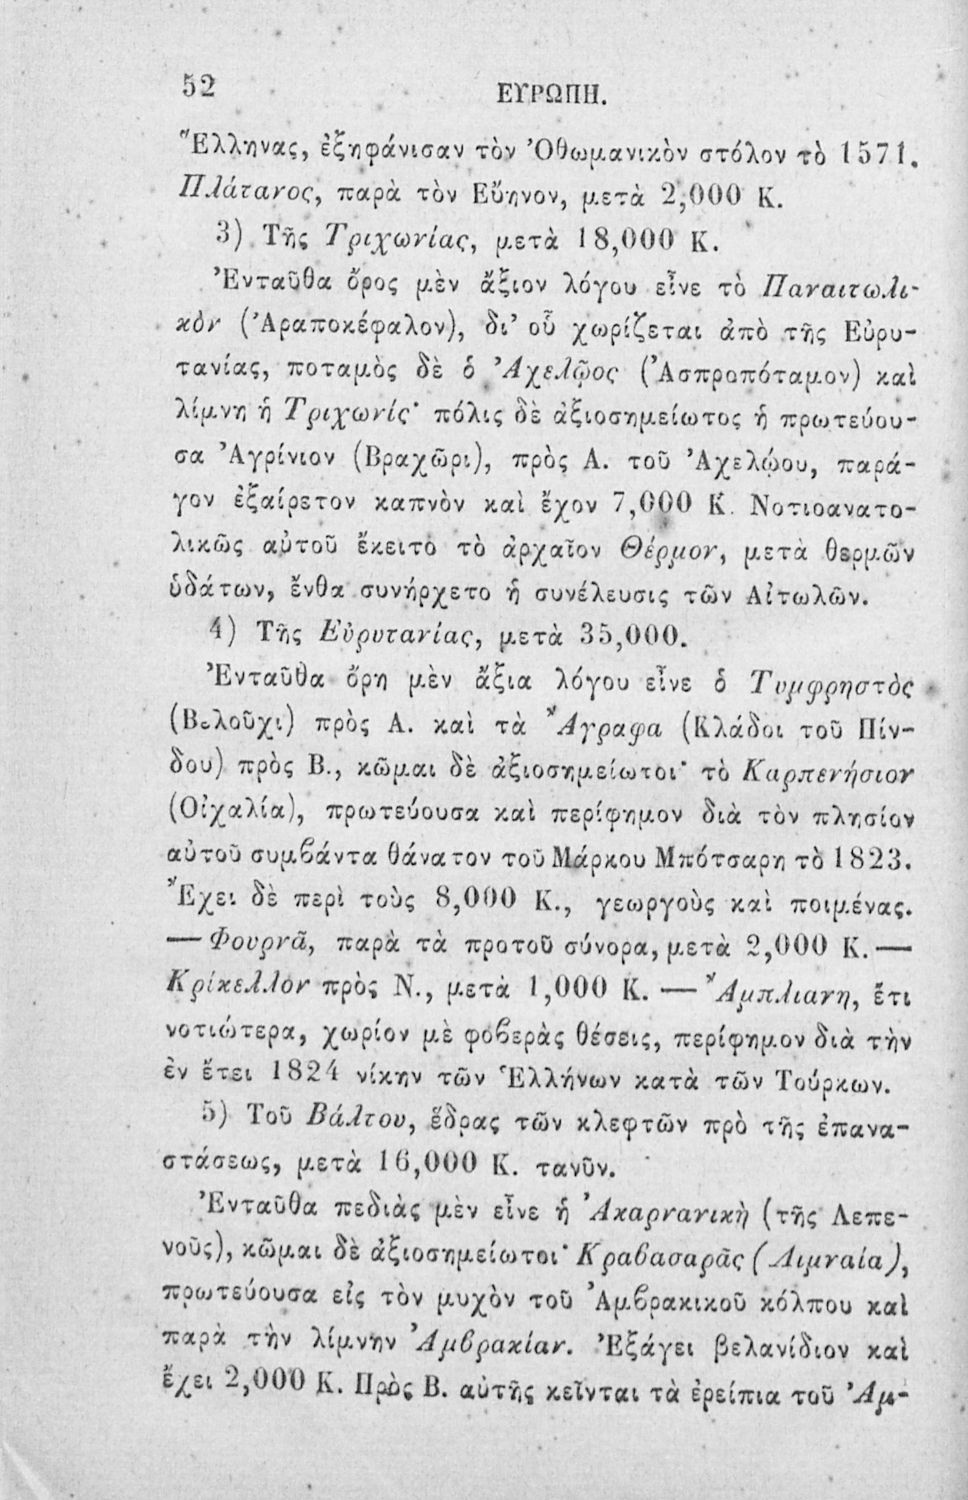 52
ΕΥΡΩΠΗ.
Ἕλληνας, ἐξηφάνισαν τὸν Ὀθωμανικὸν στόλον τὸ 1571.
Πλάτανος, παρὰ τὸν Εὔηνον, μετὰ 2,000 Κ.
3) Τῆς Τριχωνίας, μετὰ 18,000 Κ.
Ἐνταῦθα ὄρος μὲν ἄξιον λόγου εἶνε τὸ Παναιτωλι-
κὸν (Ἀραποκέφαλον), δι’ οὗ χωρίζεται ἀπὸ τῆς Εὐρυ-
τανίας, ποταμὸς δὲ ὁ Ἀχελῷος (Ἀσπροπόταμον) καὶ
λίμνη ἡ Τριχωνίς· πόλις δὲ ἀξιοσημείωτος ἡ πρωτεύου-
σα Ἀγρίνιον (Βραχῶρι), πρὸς Α. τοῦ Ἀχελῴου, παρά-
γον ἐξαίρετον καπνὸν καὶ ἔχον 7,000 Κ. Νοτιοανατο-
λικῶς αὐτοῦ ἔκειτο τὸ ἀρχαῖον Θέρμον, μετὰ θερμῶν
ὑδάτων, ἔνθα συνήρχετο ἡ συνέλευσις τῶν Αἰτωλῶν.
4) Τῆς Εὐρυτανίας, μετὰ 35,000.
Ἐνταῦθα ὄρη μὲν ἄξια λόγου εἶνε ὁ Τυμφρηστὸς
(Βελοῦχι) πρὸς Α. καὶ τὰ Ἄγραφα (Κλάδοι τοῦ Πίν-
δου) πρὸς Β., κῶμαι δὲ ἀξιοσημείωτοι· τὸ Καρπενήσιον
(Οἰχαλία), πρωτεύουσα καὶ περίφημον διὰ τὸν πλησίον
αὐτοῦ συμβάντα θάνατον τοῦ Μάρκου Μπότσαρη τὸ 1823.
Ἔχει δὲ περὶ τοὺς 8,000 Κ., γεωργοὺς καὶ ποιμένας.
— Φουρνᾶ, παρὰ τὰ προτοῦ σύνορα, μετὰ 2,000 Κ. —
Κρίκελλον πρὸς Ν., μετὰ 1,000 Κ. — Ἄμπλιανη, ἔτι
νοτιώτερα, χωρίον μὲ φοβερὰς θέσεις, περίφημον διὰ τὴν
ἐν ἔτει 1824 νίκην τῶν Ἑλλήνων κατὰ τῶν Τούρκων.
5) Τοῦ Βάλτου, ἕδρας τῶν κλεφτῶν πρὸ τῆς ἐπανα-
στάσεως, μετὰ 16,000 Κ. τανῦν.
Ἐνταῦθα πεδιὰς μὲν εἶνε ἡ Ἀκαρνανικὴ (τῆς Λεπε-
νοῦς), κῶμαι δὲ ἀξιοσημείωτοι· Κραβασαρᾶς (Λιμναία),
πρωτεύουσα εἰς τὸν μυχὸν τοῦ Ἀμβρακικοῦ κόλπου καὶ
παρὰ τὴν λίμνην Ἀμβρακίαν. Ἐξάγει βελανίδιον καὶ
ἔχει 2,000 Κ. Πρὸς Β. αὐτῆς κεῖνται τὰ ἐρείπια τοῦ Ἀμ-